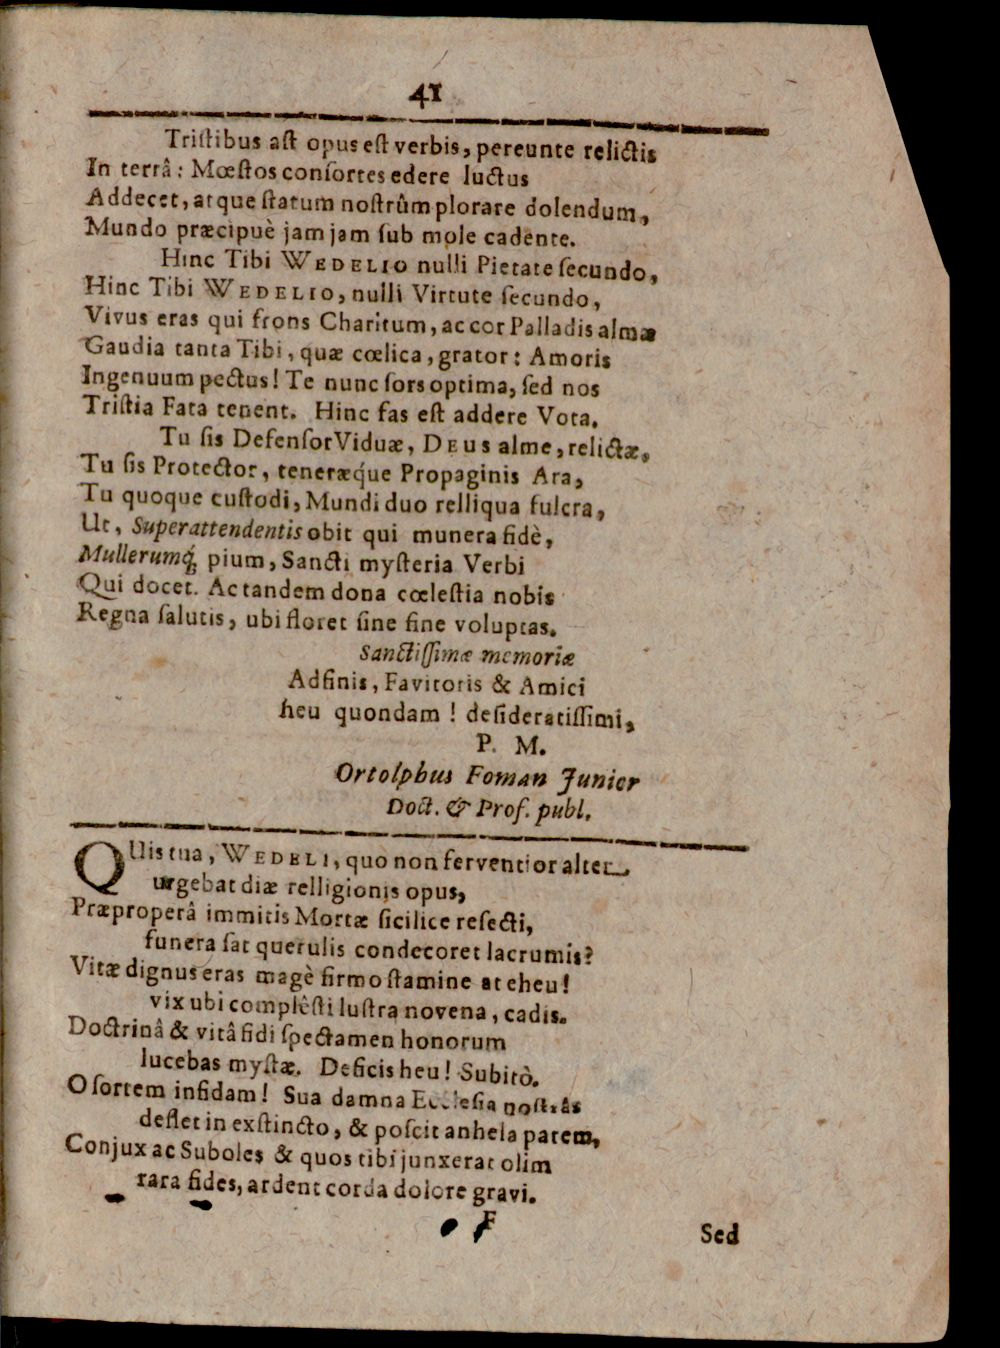 41
Tristibus ast opus est verbis, pereunte relictis
In terrâ: Mœstos consortes edere luctus
Addecet, atque statum nostrûm plorare dolendum,
Mundo præcipuè jam jam sub mole cadente.
Hinc Tibi WEDELIO nulli Pietate secundo,
Hinc Tibi WEDELIO, nulli Virtute secundo,
Vivus eras qui frons Charitum, ac cor Palladis almæ
Gaudia tanta Tibi, quæ cœlica, grator: Amoris
Ingenuum pectus! Te nunc sors optima, sed nos
Tristia Fata tenent. Hinc fas est addere Vota.
Tu sis Defensor Viduæ, DEUS alme, relictæ,
Tu sis Protector, teneræq́ue Propaginis Ara,
Tu quoque custodi, Mundi duo relliqua fulcra,
Ut, Superattendentis obit qui munera fidè,
Mullerumq́; pium, Sancti mysteria Verbi
Qui docet. Ac tandem dona cœlestia nobis
Regna salutis, ubi floret sine fine voluptas.
Sanctissimæ memoriæ
Adfinis, Favitoris & Amici
heu quondam! desideratissimi,
P. M.
Ortolphus Foman Junior
Doct. & Prof. publ.
QUis tua, WEDELI, quo non ferventior alter
urgebat diæ relligionis opus,
Præproperâ immitis Mortæ sicilice resecti,
funera sat querulis condecoret lacrumis?
Vitæ dignus eras magè firmo stamine at eheu!
vix ubi complêsti lustra novena, cadis.
Doctrinâ & vitâ fidi spectamen honorum
lucebas mystæ. Deficis heu! Subitò.
O sortem infidam! Sua damna Ecclesia nostras
deflet in exstincto, & poscit anhela parem,
Conjux ac Suboles & quos tibi junxerat olim
rara fides, ardent corda dolore gravi.
F
Sed